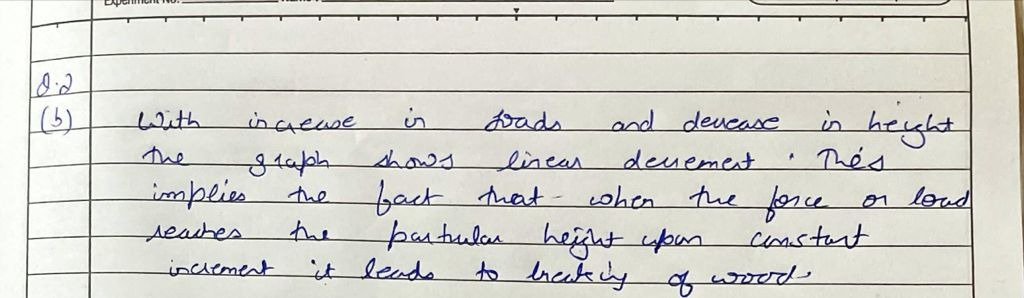 Experiment No.
Q.2
(b) With increase in loads and decease in height
the graph shows linear decrement. This
implies the fact that when the force or load
reaches the partular height upon constant
increment it leads to breaking of wood.